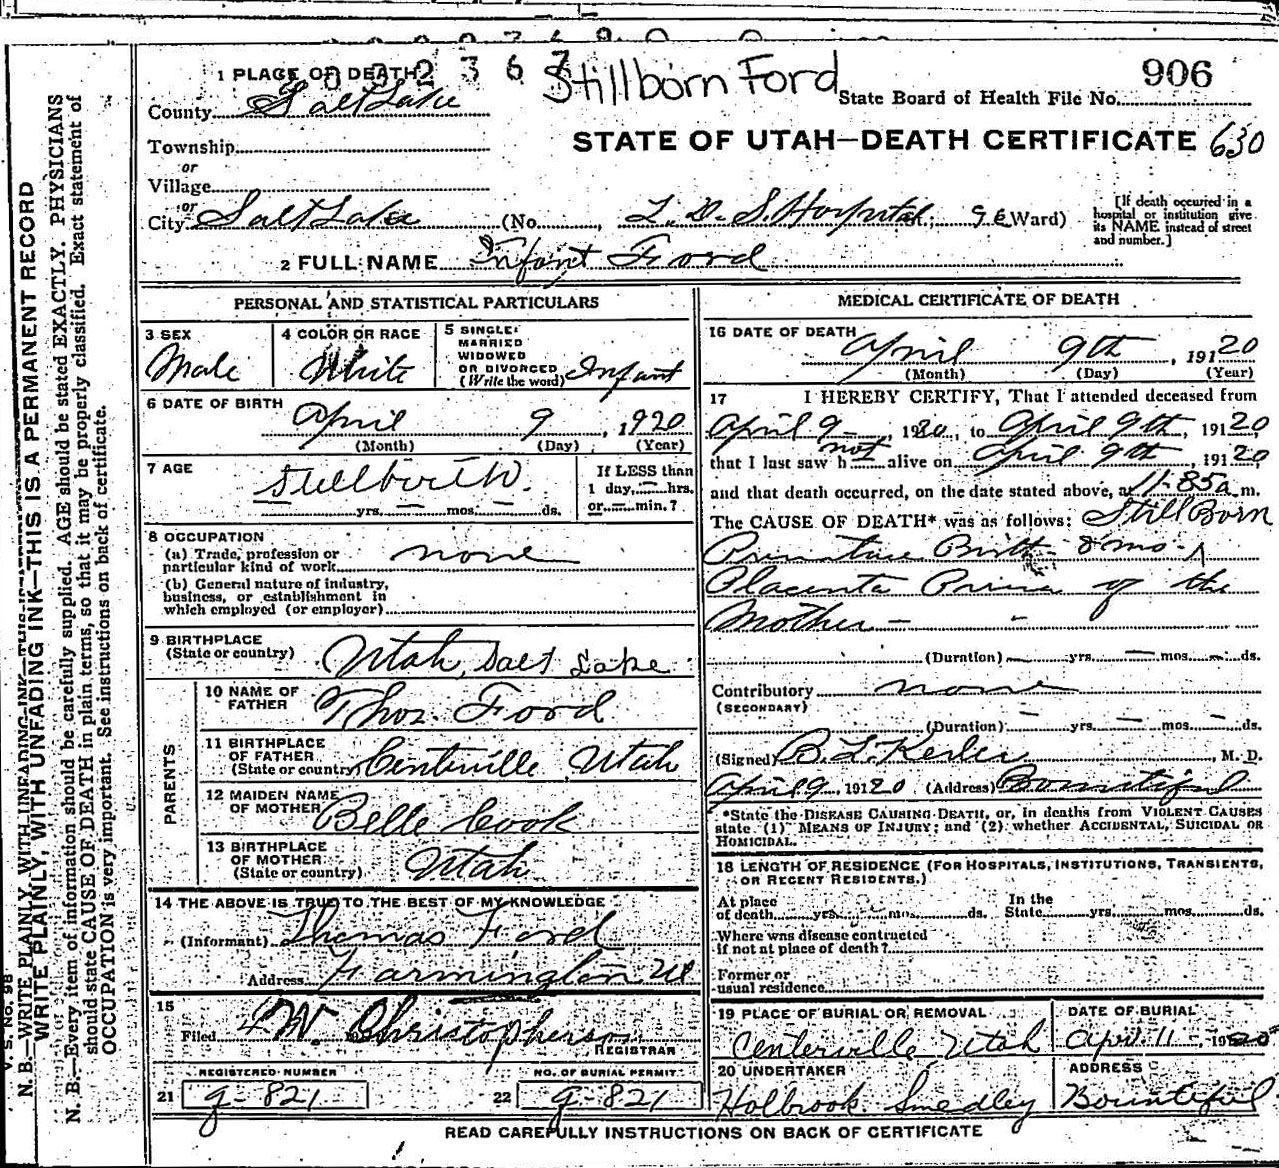 1 PLACE OF DEATH
032367
Stillborn Ford
906
State Board of Health File No.
County Salt Lake
STATE OF UTAH—DEATH CERTIFICATE 630
Township
or
Village
or
City Salt Lake (No. , L. D. S. Hospital; Ward)
[If death occurred in a hospital or institution give its NAME instead of street and number.]
2 FULL NAME Infant Ford
PERSONAL AND STATISTICAL PARTICULARS
3 SEX
Male
4 COLOR OR RACE
White
5 SINGLE
MARRIED
WIDOWED
OR DIVORCED
(Write the word) Infant
6 DATE OF BIRTH
April 9, 1920
(Month) (Day) (Year)
7 AGE
Stillbirth.
yrs. — mos. — ds.
If LESS than
1 day, — hrs.
or — min.?
8 OCCUPATION
(a) Trade, profession or
particular kind of work none
(b) General nature of industry,
business, or establishment in
which employed (or employer)
9 BIRTHPLACE
(State or country) Utah, Salt Lake
PARENTS
10 NAME OF
FATHER Thos. Ford
11 BIRTHPLACE
OF FATHER
(State or country) Centerville Utah
12 MAIDEN NAME
OF MOTHER Belle Cook
13 BIRTHPLACE
OF MOTHER
(State or country) Utah
14 THE ABOVE IS TRUE TO THE BEST OF MY KNOWLEDGE
(Informant) Thomas Ford
Address Farmington Ut
15
Filed W. Christopherson
REGISTRAR
REGISTERED NUMBER
21 g-821
NO. OF BURIAL PERMIT
22 g-821
MEDICAL CERTIFICATE OF DEATH
16 DATE OF DEATH
April 9th, 19120
(Month) (Day) (Year)
17 I HEREBY CERTIFY, That I attended deceased from
April 9, 1920, to April 9th, 19120
that I last saw h not alive on April 9th 19120,
and that death occurred, on the date stated above, at 11-85a m.
The CAUSE OF DEATH* was as follows: Still Born
Premature Birth - 8 mo.
Placenta of the
Mother -
(Duration) — yrs. — mos. — ds.
Contributory none
(SECONDARY)
(Duration) — yrs. — mos. — ds.
(Signed) B. L. , M. D.
April 9, 19120 (Address) Bountiful
*State the DISEASE CAUSING DEATH, or, in deaths from VIOLENT CAUSES
state (1) MEANS OF INJURY; and (2) whether ACCIDENTAL, SUICIDAL OR
HOMICIDAL.
18 LENGTH OF RESIDENCE (FOR HOSPITALS, INSTITUTIONS, TRANSIENTS,
OR RECENT RESIDENTS.)
At place
of death yrs. mos. ds.
In the
State yrs. mos. ds.
Where was disease contracted
if not at place of death?
Former or
usual residence
19 PLACE OF BURIAL OR REMOVAL
Centerville, Utah
DATE OF BURIAL
April 11 - 1920
20 UNDERTAKER
Holbrook Smedley
ADDRESS
Bountiful
READ CAREFULLY INSTRUCTIONS ON BACK OF CERTIFICATE
V. S. No. 98
N. B.—WRITE PLAINLY, WITH UNFADING INK—THIS IS A PERMANENT RECORD
WRITE PLAINLY, WITH UNFADING INK—THIS IS A PERMANENT RECORD
N. B.—Every item of information should be carefully supplied. AGE should be stated EXACTLY. PHYSICIANS
should state CAUSE OF DEATH in plain terms, so that it may be properly classified. Exact statement of
OCCUPATION is very important. See instructions on back of certificate.